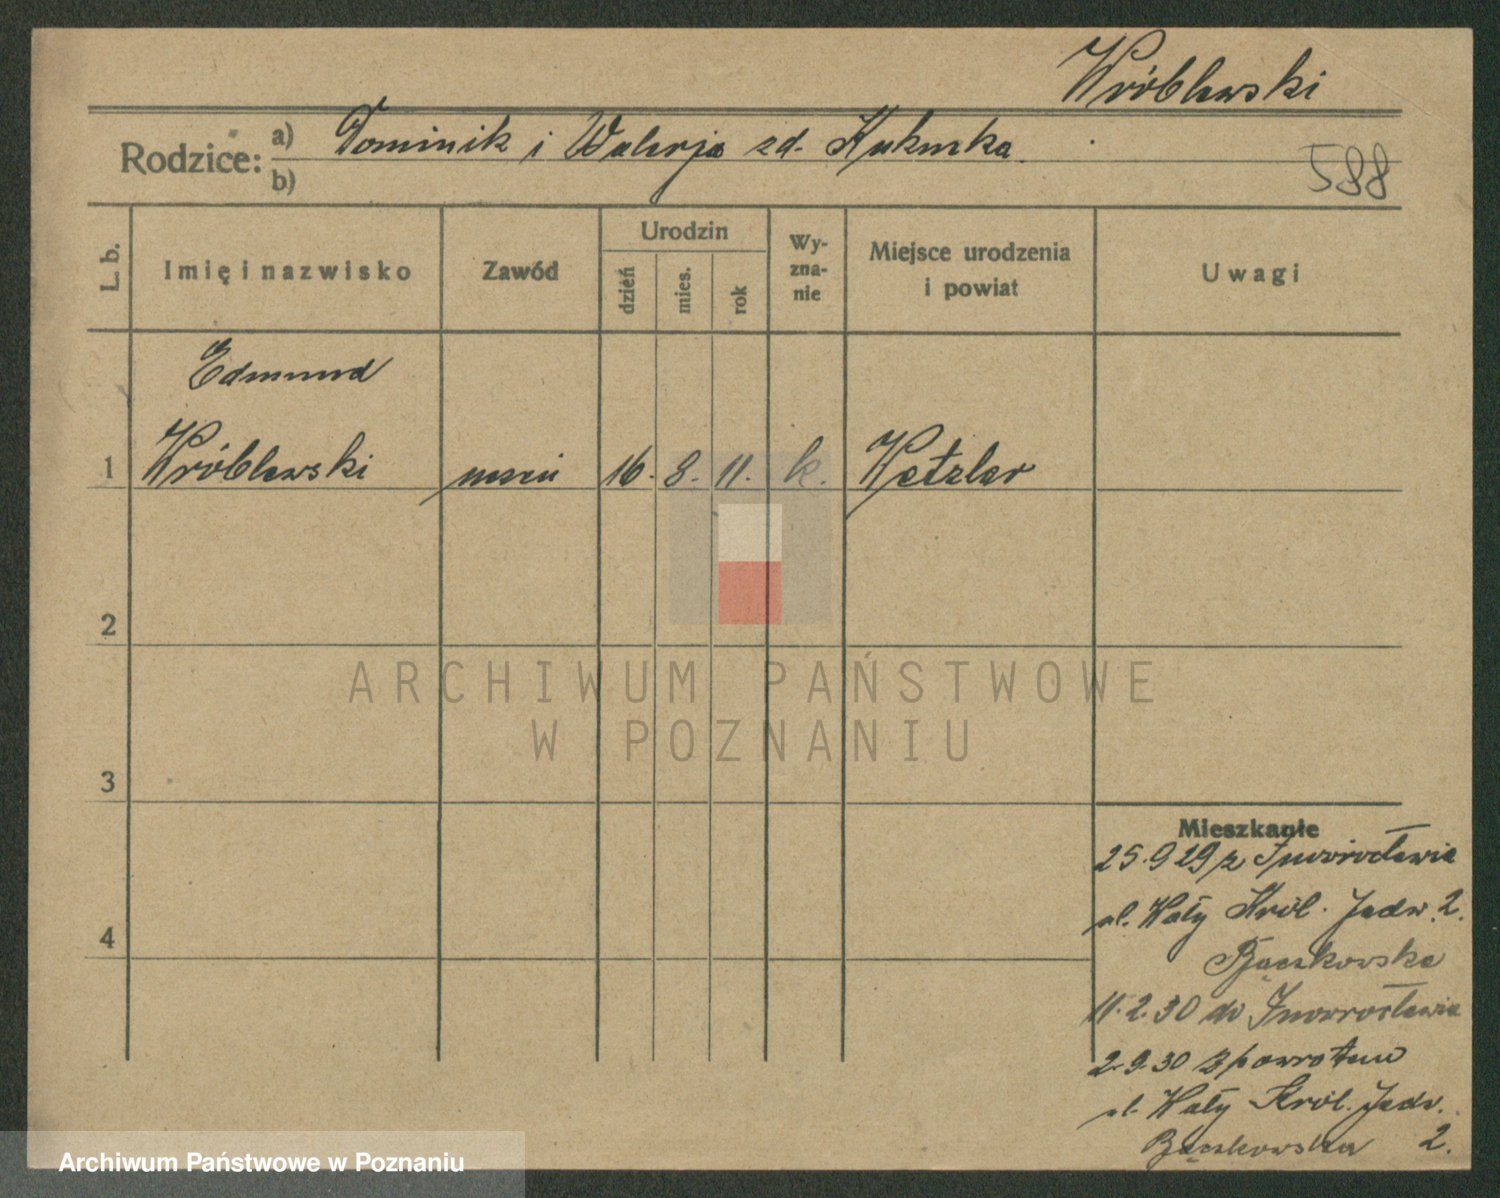 Wróblewski
Rodzice: a) Dominik i Walerja zd. Kukurka
b)
588
L. b.
Imię i nazwisko
Zawód
Urodzin
dzień
mies.
rok
Wy-
zna-
nie
Miejsce urodzenia
i powiat
Uwagi
Edmund
1 Wróblewski uczeń 16. 8. 11. k. Wetzlar
2
3
4
Mieszkanie
25.9 29 z Inowrocławia
ul. Wały Król. Jadw. 2.
Bączkowska
11.2.30 do Inowrocławia
2.9.30 z powrotem
ul. Wały Król. Jadw.
Bączkowska 2.
ARCHIWUM PAŃSTWOWE
W POZNANIU
Archiwum Państwowe w Poznaniu